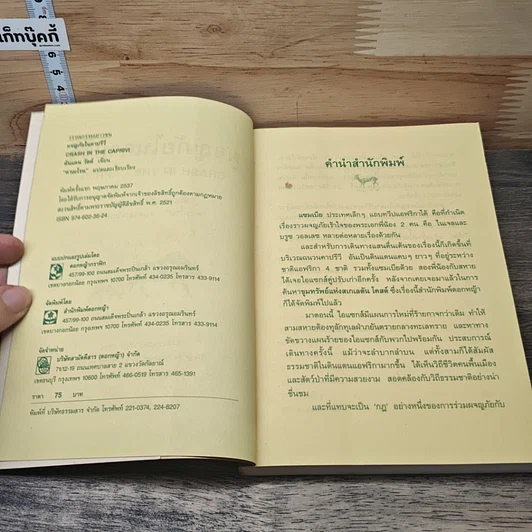 เก็ทบุ๊คกี้
ผจญภัยในคาปรีวี
CRASH IN THE CAPRIVI
พิมพ์ครั้งแรก พฤษภาคม 2537
ได้รับการอนุญาตจัดพิมพ์จากเจ้าของลิขสิทธิ์ถูกต้องตามกฎหมาย
สงวนลิขสิทธิ์ตามพระราชบัญญัติลิขสิทธิ์ พ.ศ. 2521
ISBN 974-602-36-24
แบบปกและรูปเล่มโดย
ดอกหญ้ากราฟิก
457/99-100 ถนนสมเด็จพระปิ่นเกล้า แขวงอรุณอมรินทร์
เขตบางกอกน้อย กรุงเทพฯ 10700 โทรศัพท์ 434-0235 โทรสาร 433-9114
จัดพิมพ์โดย
สำนักพิมพ์ดอกหญ้า
457/99-100 ถนนสมเด็จพระปิ่นเกล้า แขวงอรุณอมรินทร์
เขตบางกอกน้อย กรุงเทพฯ 10700 โทรศัพท์ 434-0235 โทรสาร 433-9114
จัดจำหน่าย
บริษัทสามัคคีสาร (ดอกหญ้า) จำกัด
71/12-19 ถนนเทศบาลสาย 2 แขวงวัดกัลยาณ์
เขตธนบุรี กรุงเทพฯ 10600 โทรศัพท์ 466-0519 โทรสาร 465-1391
ราคา 75 บาท
พิมพ์ที่ บริษัทธรรมสาร จำกัด โทรศัพท์ 221-0374, 224-8207
คำนำสำนักพิมพ์
แซมเบีย ประเทศเล็กๆ แถบทวีปแอฟริกาใต้ คือที่กำเนิด
เรื่องราวผจญภัยเร้าใจของพระเอกพี่น้อง 2 คน คือ ไนเจลและ
บรูซ วอลเลซ หลายต่อหลายเรื่องด้วยกัน
และสำหรับการเดินทางแสนตื่นเต้นของเรื่องนี้ก็เกิดขึ้นที่
บริเวณฉนวนคาปรีวี อันเป็นดินแดนแคบๆ ยาวๆ ที่อยู่ระหว่าง
ชาติแอฟริกา 4 ชาติ รวมทั้งแซมเบียด้วย สองพี่น้องกับสหาย
ได้เจอไอแซกส์คู่ปรับเก่าอีกครั้ง หลังจากเคยเจอมาแล้วในการ
ค้นหาขุมทรัพย์แห่งสเกลตัน โคสต์ ซึ่งเรื่องนี้สำนักพิมพ์ดอกหญ้า
ก็ได้จัดพิมพ์ไปแล้ว
มาตอนนี้ ไอแซกส์มีแผนการใหม่ที่ร้ายกาจกว่าเดิม ทำให้
สามสหายต้องทุลักทุเลฝ่าภยันตรายกลางทะเลทราย และหาทาง
ขัดขวางแผนร้ายของไอแซกส์กับพวกไปพร้อมกัน ประสบการณ์
เดินทางครั้งนี้ แม้ว่าจะลำบากลำบน แต่ทั้งสามก็ได้สัมผัส
ธรรมชาติในดินแดนแอฟริกามากขึ้น ได้เห็นวิถีชีวิตคนพื้นเมือง
และสัตว์ป่าที่มีความสวยงาม สอดคล้องกับวิถีธรรมชาติอย่างน่า
ชื่นชม
และที่แทบจะเป็น 'กฎ' อย่างหนึ่งของการร่วมผจญภัยกับ